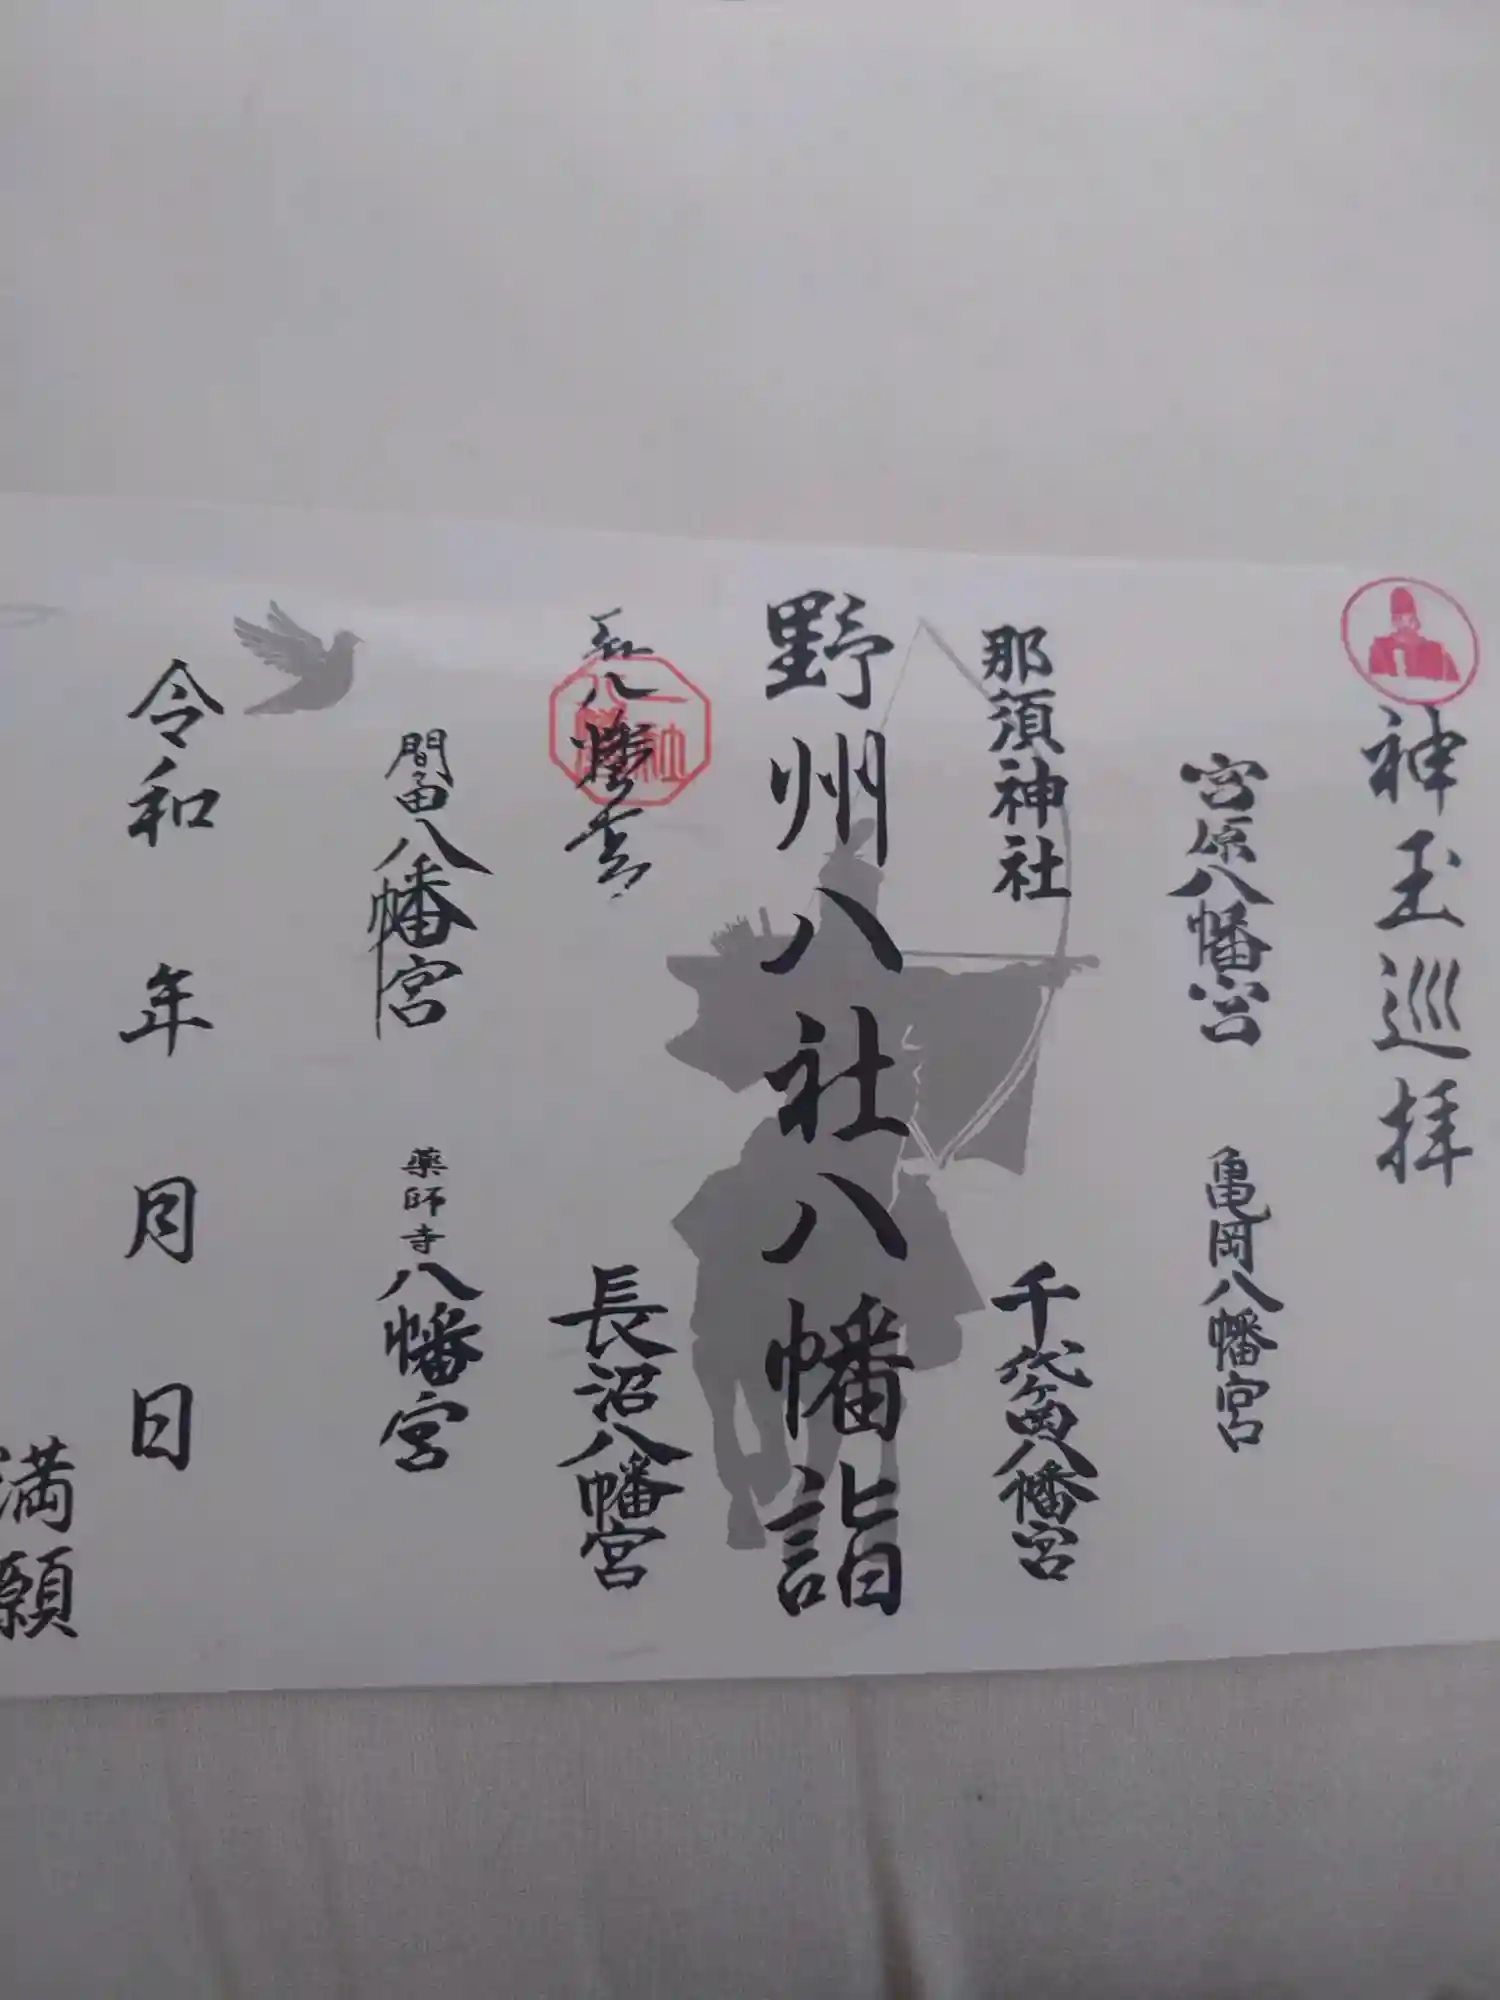 神玉巡拝
宮原八幡宮
亀岡八幡宮
那須神社
千代ケ岡八幡宮
野州八社八幡詣
八幡宮
長沼八幡宮
間々田八幡宮
薬師寺八幡宮
令和 年 月 日
満願